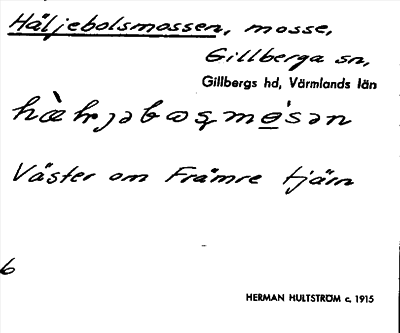 Häljebolsmossen, mosse,
Gillberga sn,
Gillbergs hd, Värmlands län
Väster om Främre tjärn
6
HERMAN HULTSTRÖM c. 1915